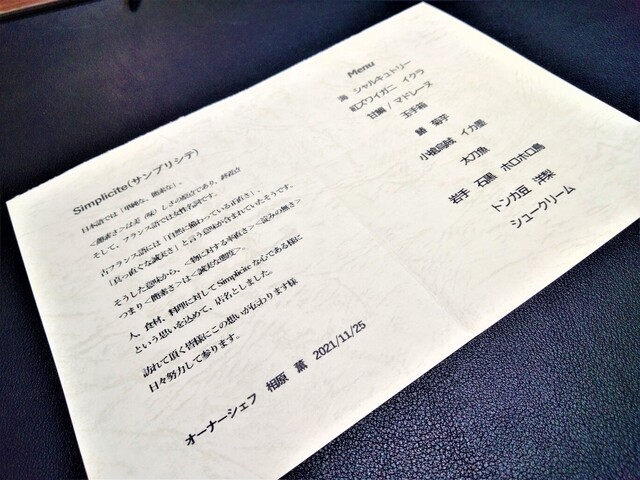 Simplicite(サンプリシテ)
日本語では「単純な、簡素な」、
<簡素さ>は美(味)しさの原点であり、終着点
そして、フランス語では女性名詞です。
古フランス語には「自然に備わっている正直さ」、
「真っ直ぐな誠実さ」と言う意味が含まれていたそうです。
そうした意味から、<物に対する率直さ><淀みの無さ>
つまり<簡素さ>は<誠実な態度>。
人、食材、料理に対してSimpliciteな心である様に
という思いを込めて、店名としました。
訪れて頂く皆様にこの想いが伝わります様
日々努力して参ります。
オーナーシェフ 相原 薫 2021/11/25
Menu
海 シャルキュトリー
紅ズワイガニ イクラ
甘鯛 / マドレーヌ
玉手箱
鰆 菊芋
小槍烏賊 イカ墨
太刀魚
岩手 石黒 ホロホロ鳥
トンカ豆 洋梨
シュークリーム